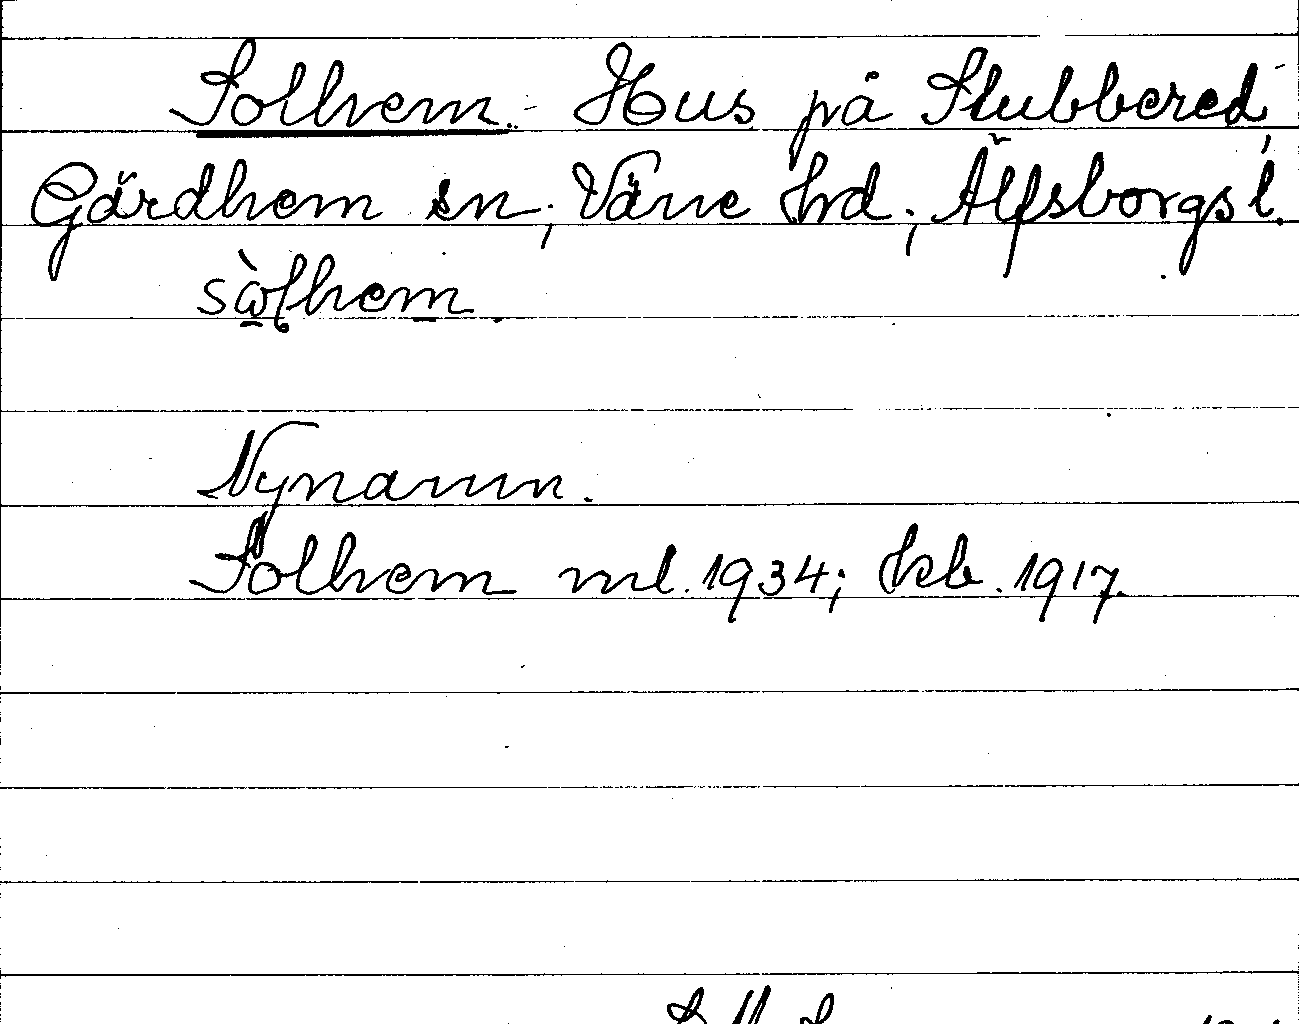 Solhem. - Hus på Stubbered,
Gärdhem sn, Väne hrd, Älfsborgs l.
Nynamn.
Solhem ml. 1934; hkb. 1917.